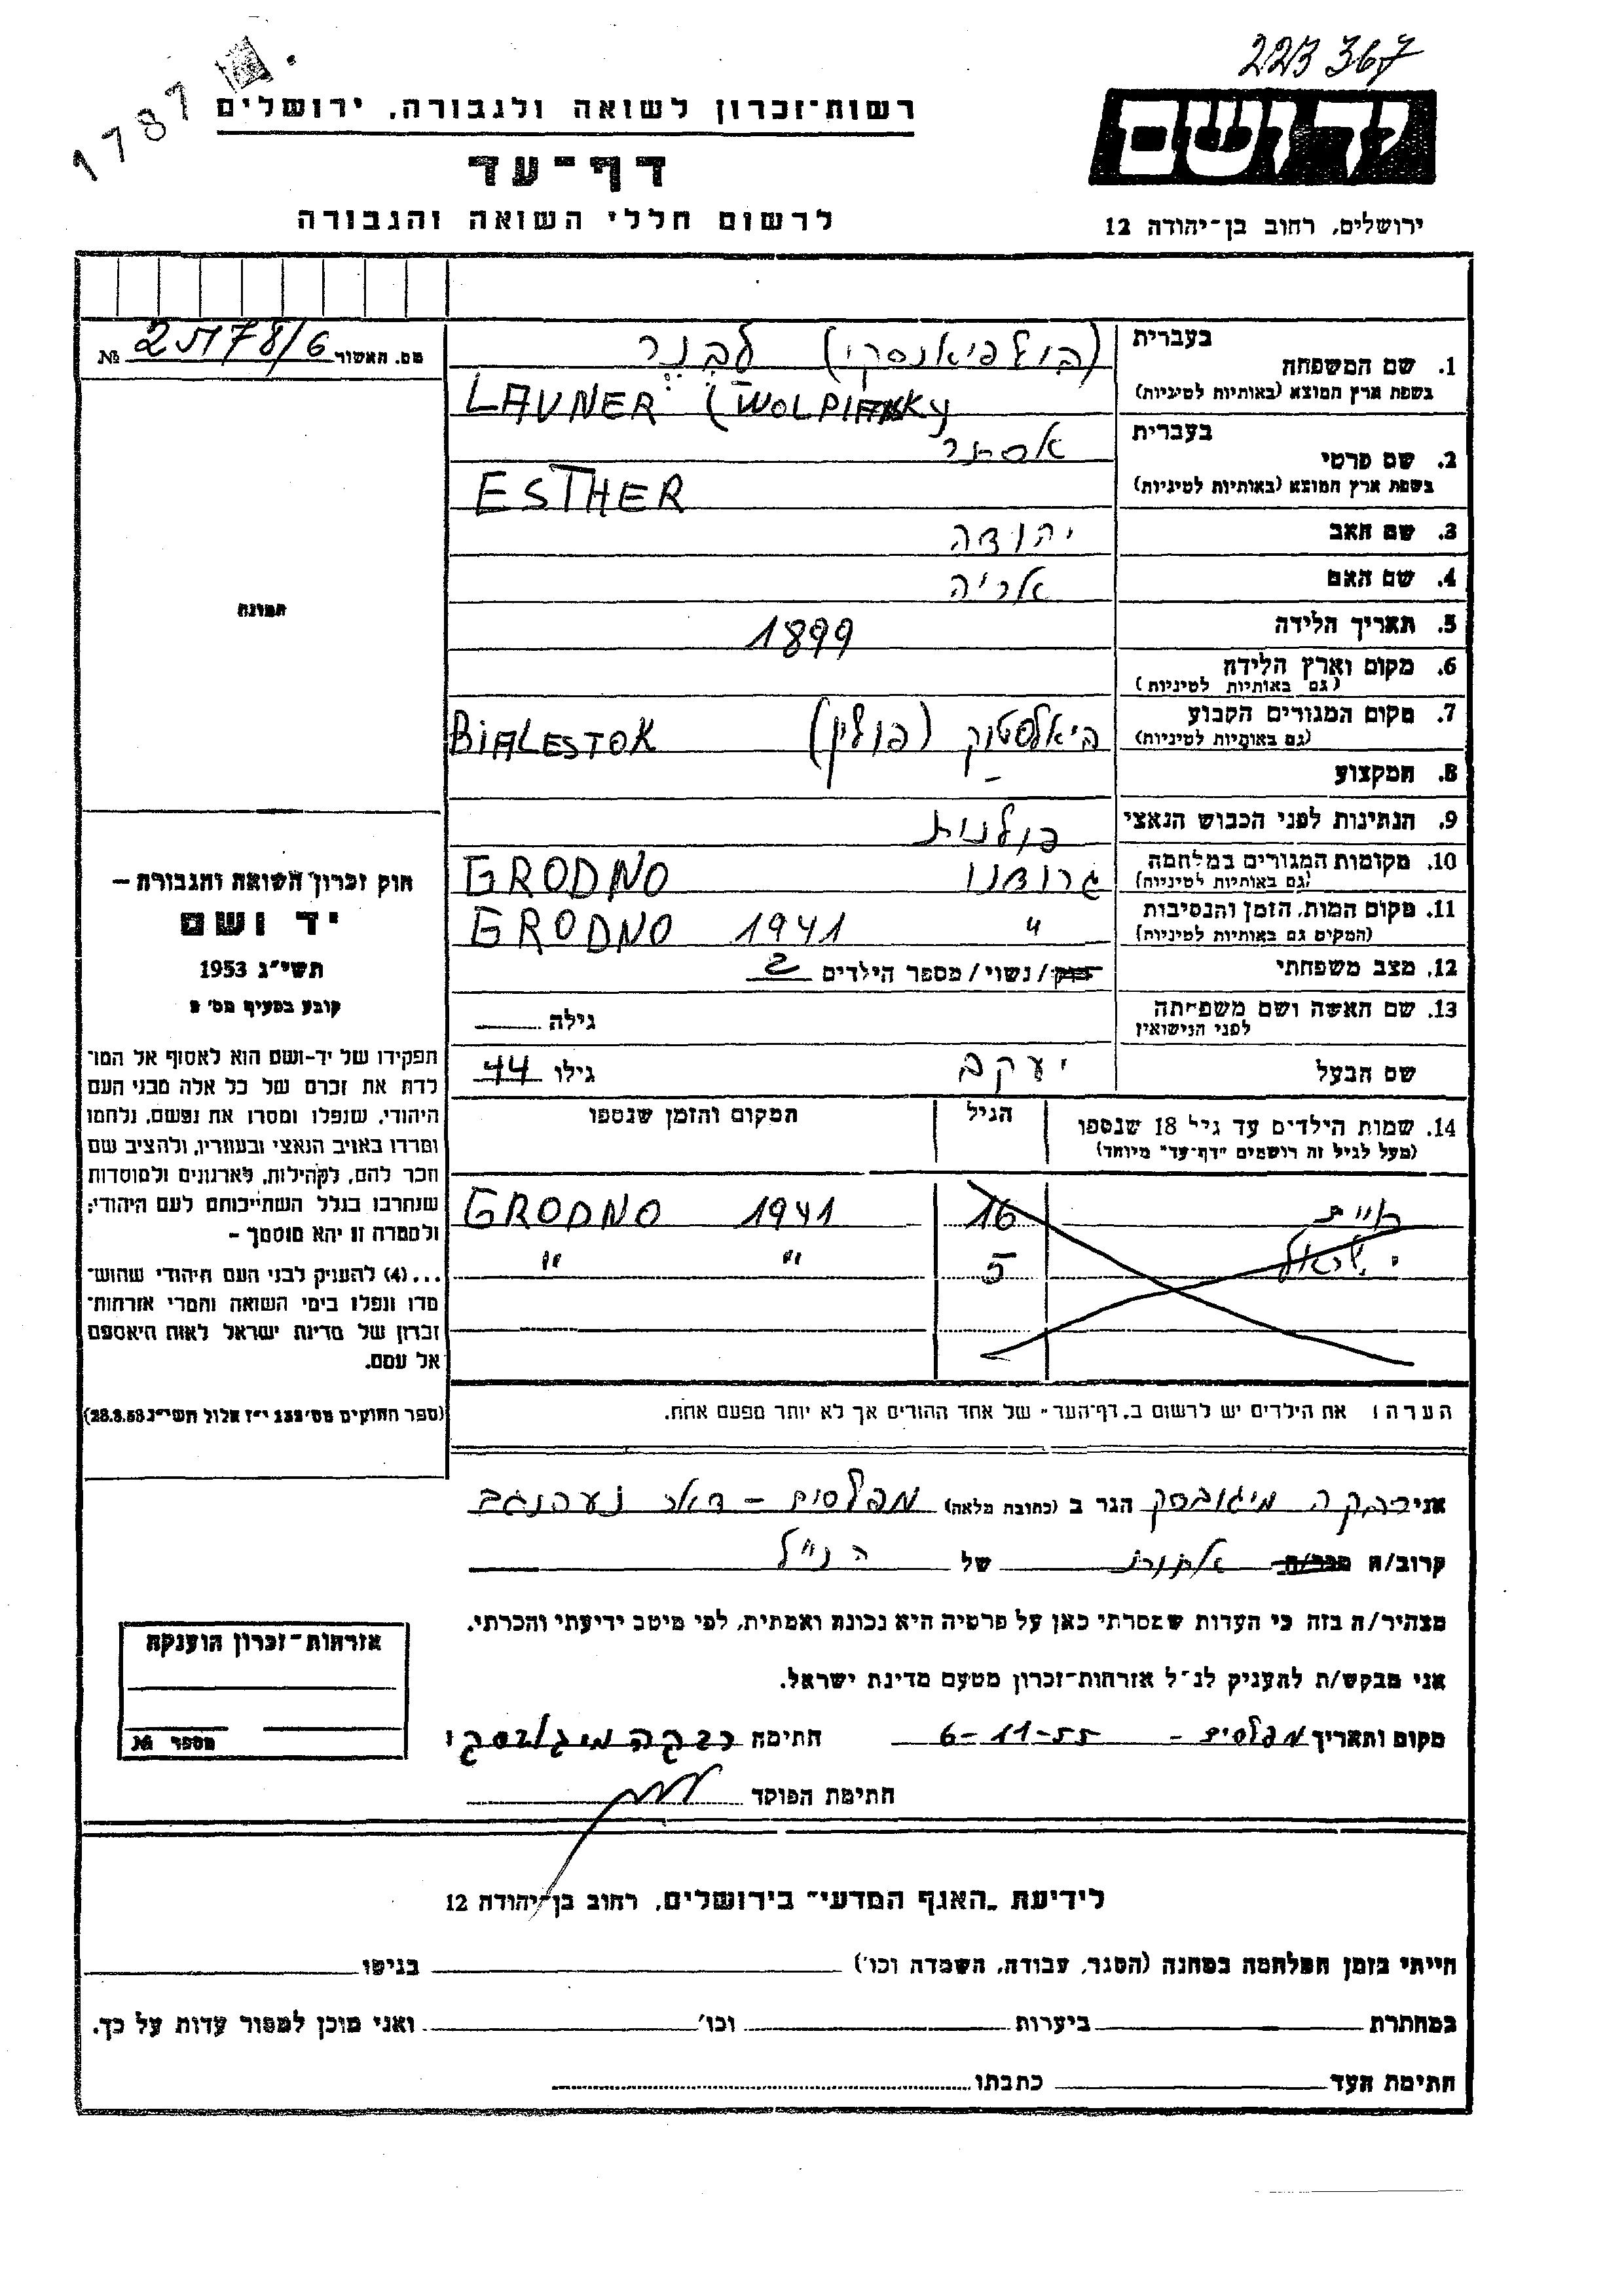 223 367
1787
יד ושם
ירושלים, רחוב בן-יהודה 12
רשות-זכרון לשואה ולגבורה, ירושלים
דף-עד
לרשום חללי השואה והגבורה
מס. האשור № 278/6
1. שם המשפחה בעברית (וולפיאנסקי) לבנר
בשפת ארץ המוצא (באותיות לטיניות) LAVNER (WOLPIANSKY
2. שם פרטי בעברית אסתר
בשפת ארץ המוצא (באותיות לטיניות) ESTHER
3. שם האב יהודה
4. שם האם אריה
5. תאריך הלידה 1899
6. מקום וארץ הלידה
(גם באותיות לטיניות)
7. מקום המגורים הקבוע ביאלסטוק (פולין) BIALESTOK
(גם באותיות לטיניות)
8. המקצוע -
9. הנתינות לפני הכבוש הנאצי פולנית
10. מקומות המגורים במלחמה גרודנו GRODNO
(גם באותיות לטיניות)
11. מקום המות, הזמן והנסיבות " 1941 GRODNO
(המקום גם באותיות לטיניות)
12. מצב משפחתי רוק/נשוי/מספר הילדים 2
13. שם האשה ושם משפחתה גילה
לפני הנישואין
שם הבעל יעקב גילו 44
14. שמות הילדים עד גיל 18 שנספו הגיל המקום והזמן שנספו
(מעל לגיל זה רושמים "דף-עד" מיוחד)
16 GRODNO 1941
ישראל 5 " "
הערה: את הילדים יש לרשום ב"דף-העד" של אחד ההורים אך לא יותר מפעם אחת.
תמונה
חוק זכרון השואה והגבורה —
יד ושם
תשי"ג 1953
קובע בסעיף מס' 2
תפקידו של יד-ושם הוא לאסוף אל המו-
לדת את זכרם של כל אלה מבני העם
היהודי, שנפלו ומסרו את נפשם, נלחמו
ומרדו באויב הנאצי ובעוזריו, ולהציב שם
וזכר להם, לקהילות, לארגונים ולמוסדות
שנחרבו בגלל השתייכותם לעם היהודי;
ולמטרה זו יהא מוסמך —
...(4) להעניק לבני העם היהודי שהוש-
מדו ונפלו בימי השואה והמרי אזרחות-
זכרון של מדינת ישראל לאות היאספם
אל עמם.
(ספר החוקים מס' 132 י"ז אלול תשי"ג 28.8.53)
אני רבקה מיגובסקי הגר ב (כתובת מלאה) מפלסים - דאר נע הנגב
קרוב/ה מכר/ה אחות של הנ"ל
מצהיר/ה בזה כי העדות שמסרתי כאן על פרטיה היא נכונה ואמתית, לפי מיטב ידיעתי והכרתי.
אני מבקש/ת להעניק לנ"ל אזרחות-זכרון מטעם מדינת ישראל.
מקום ותאריך מפלסים - 6-11-55 חתימה רבקה מיגובסקי
חתימת הפוקד
אזרחות-זכרון הוענקה
מספר №
לידיעת "האגף המדעי" בירושלים, רחוב בן-יהודה 12
הייתי בזמן המלחמה במחנה (הסגר, עבודה, השמדה וכו') בגיטו
במחתרת ביערות וכו' ואני מוכן למסור עדות על כך.
חתימת העד כתבתו